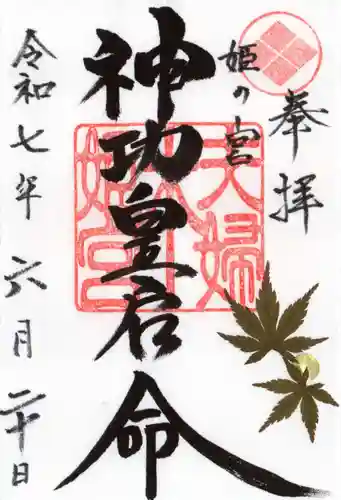 奉拝
姫の宮
神功皇后命
夫婦
姫宮
令和七年六月二十日